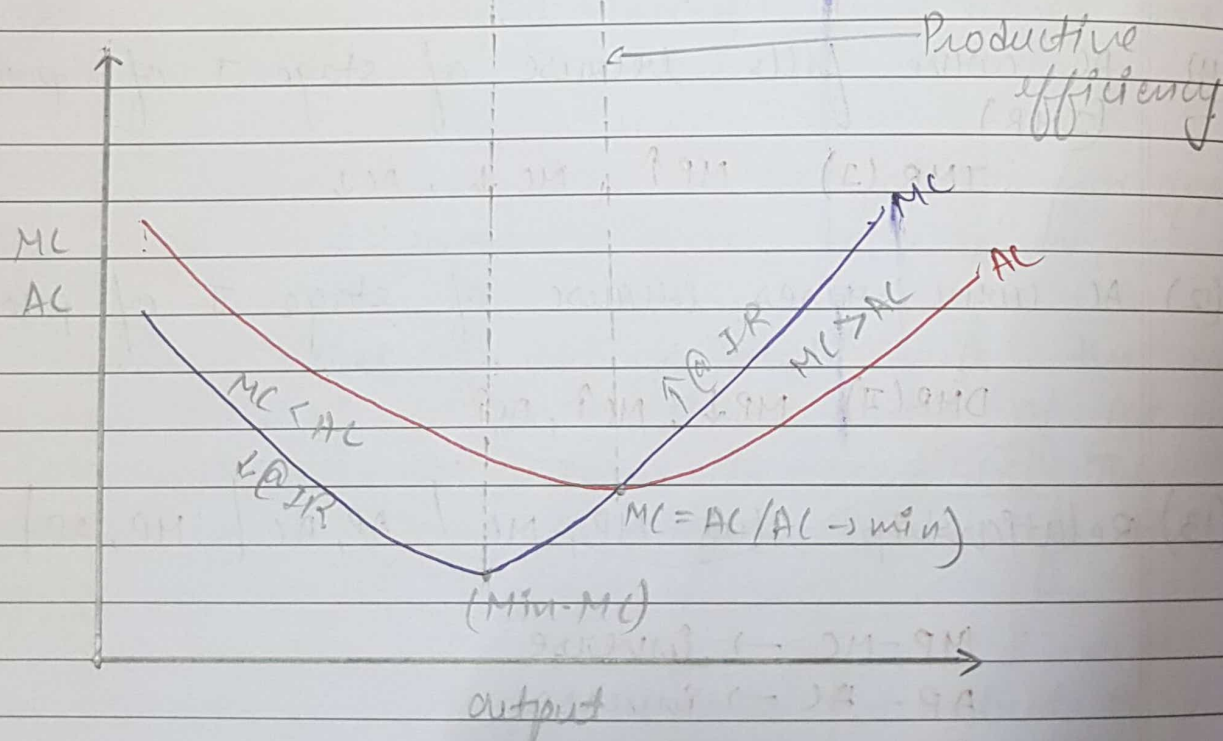 Productive
efficiency
MC
AC
MC
AC
MC < AC
↓@IR
↑@IR
MC > AC
MC = AC/AC → min)
(Min-MC)
output